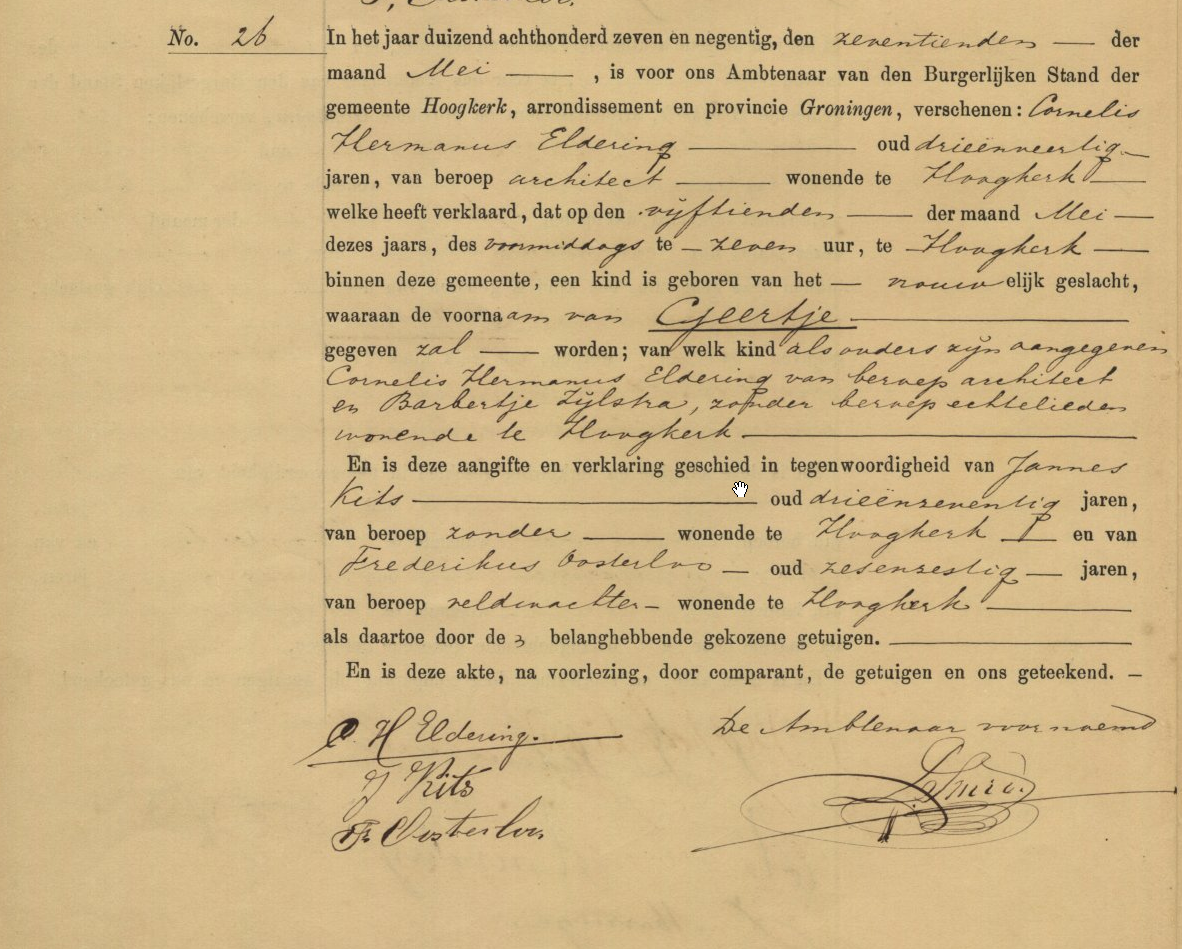 No. 26 In het jaar duizend achthonderd zeven en negentig, den zeventienden — der
maand Mei — , is voor ons Ambtenaar van den Burgerlijken Stand der
gemeente Hoogkerk, arrondissement en provincie Groningen, verschenen: Cornelis
Hermanus Eldering — oud drieënveertig —
jaren, van beroep architect — wonende te Hoogkerk —
welke heeft verklaard, dat op den vijftienden — der maand Mei —
dezes jaars, des voormiddags te — zeven uur, te — Hoogkerk —
binnen deze gemeente, een kind is geboren van het — vrouwelijk geslacht,
waaraan de voornaam van Geertje —
gegeven zal — worden; van welk kind als ouders zijn aangegeven
Cornelis Hermanus Eldering van beroep architect
en Barbertje Zijlstra, zonder beroep echtelieden
wonende te Hoogkerk —
En is deze aangifte en verklaring geschied in tegenwoordigheid van Jannes
Kits — oud drieënzeventig jaren,
van beroep zonder — wonende te Hoogkerk — en van
Frederikus Oosterloo — oud zesenzestig — jaren,
van beroep veldwachter — wonende te Hoogkerk —
als daartoe door de belanghebbende gekozene getuigen. —
En is deze akte, na voorlezing, door comparant, de getuigen en ons geteekend. —
C. H Eldering. De Ambtenaar voornoemd
J Kits
Fr Oosterloo